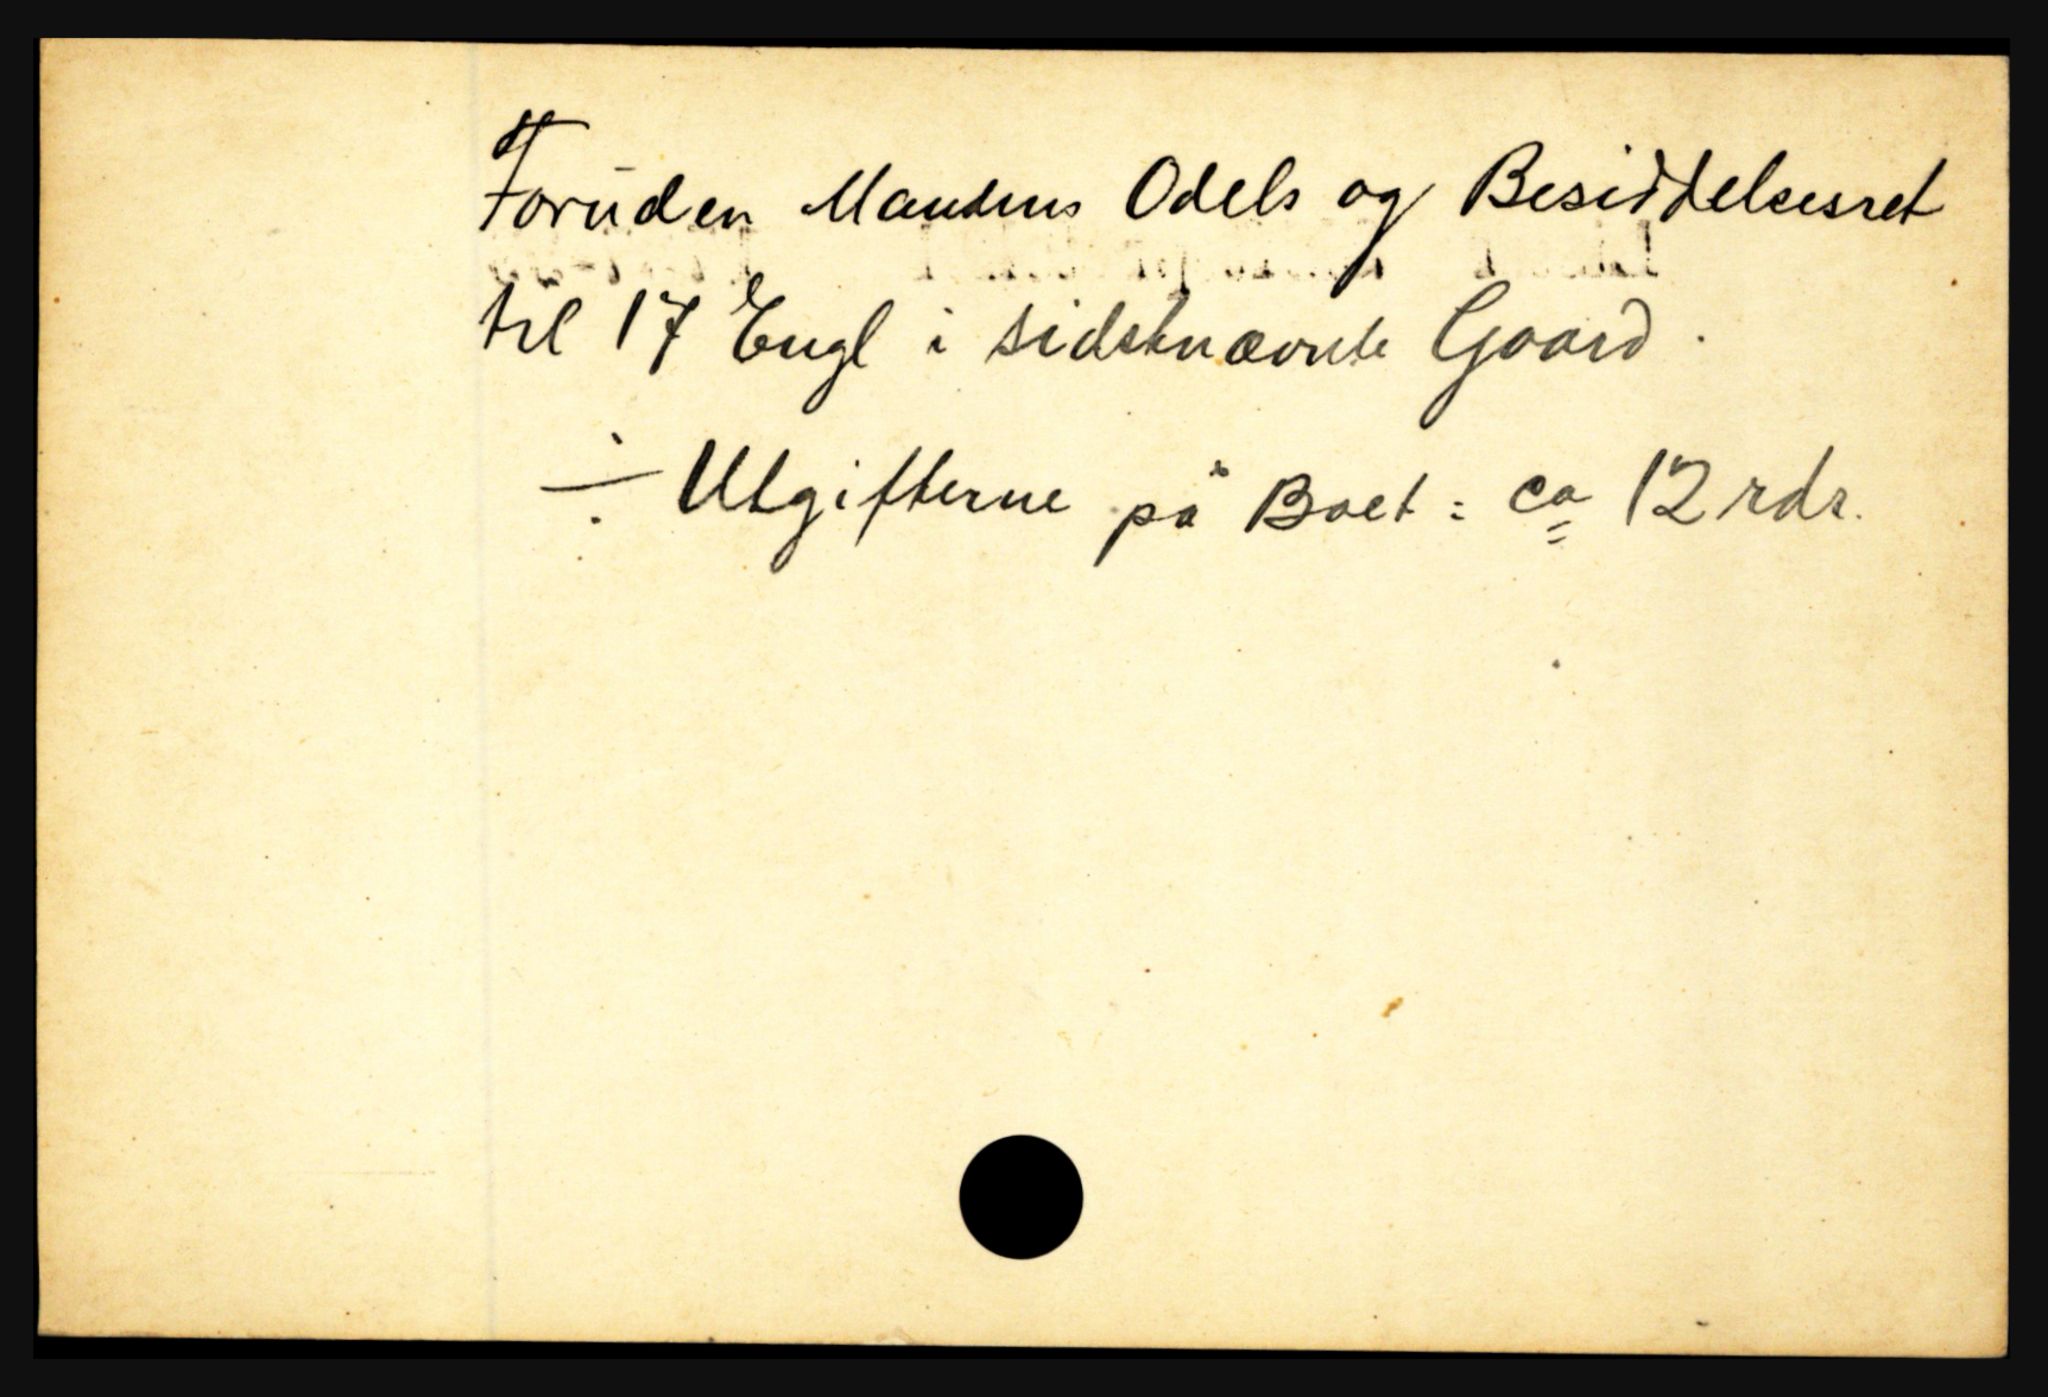 Foruden Mandens Odels og Besiddelsesret
til 17 Engl i sidstnævnte Gaard.
÷ Utgifterne på Boet: ca 12 rdr.